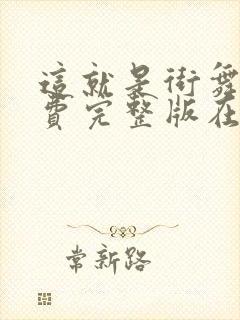 這就是街舞
費完整版在
常新路